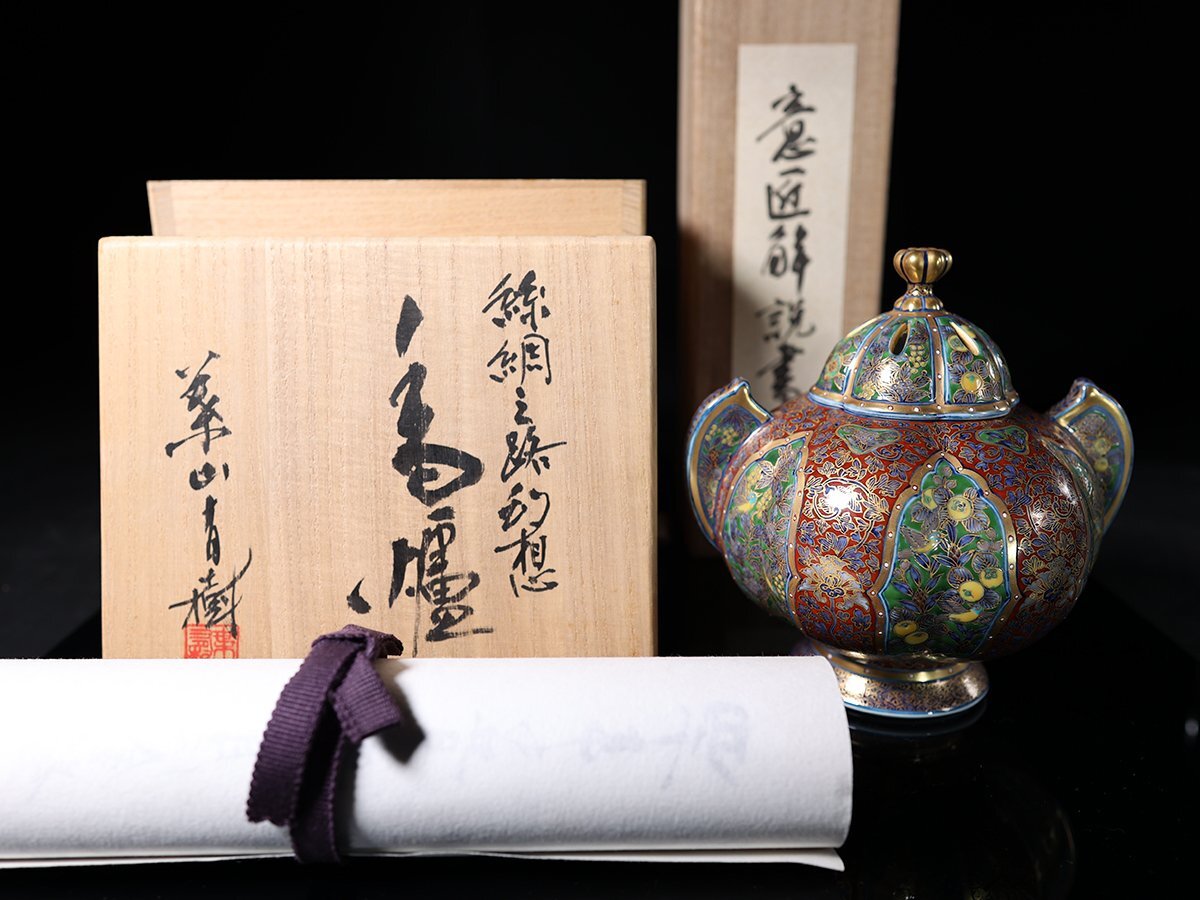 意匠解説書
絲綢之路想
香爐
葉山有樹